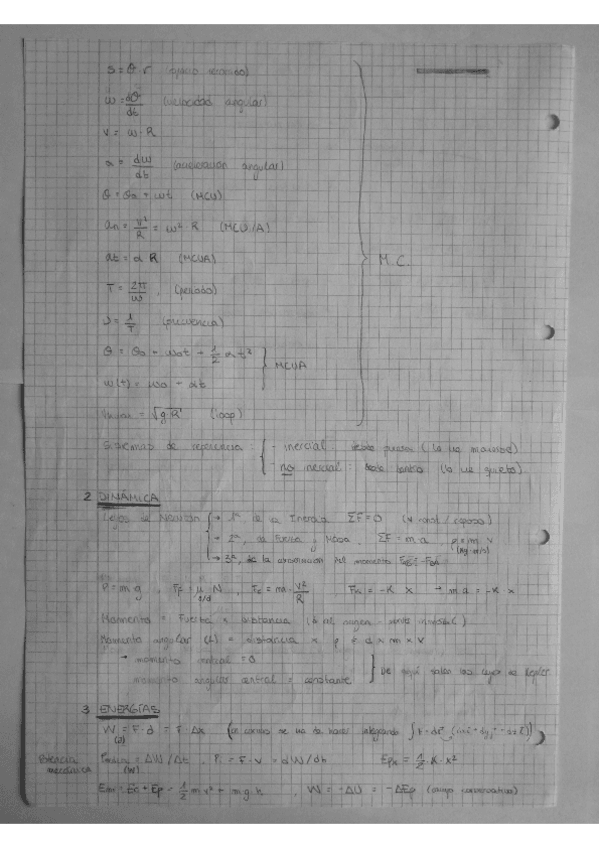 S = θ · r (espacio recorrido)
ω = dθ/dt (velocidad angular)
v = ω · R
α = dω/dt (aceleración angular)
θ = θo + ωt (MCU)
an = v²/R = ω² · R (MCU/A)
at = α R (MCUA)
T = 2π/ω (periodo)
ν = 1/T (frecuencia)
θ = θo + ωot + 1/2 α t² } MCUA
ω(t) = ωo + αt
= √g·R (loop)
M.C.
Sistemas de referencia: - inercial: desde fuera (lo ve moverse)
- no inercial: desde dentro (lo ve quieto).
2 DINÁMICA
Leyes de Newton → 1ª de la Inercia ΣF = 0 (v const / reposo)
→ 2ª, de Fuerza y Masa, ΣF = m a p = m v
(kg·m/s)
→ 3ª, de la del momento
P = m g , Fr = μ N , Fc = m · v²/R Fx = -K x → m a = -K · x
s/d
Momento = Fuerza × distancia (
Momento angular (L) = distancia × p = d × m × v
→ momento central = 0
momento angular central = constante } De aquí salen las leyes de Kepler
3 ENERGÍAS
W = F · d = F · Δx
(J)
Potencia mecánica
P = ΔW/Δt , Pi = F · v = dW/dt Epx = 1/2 · K · x²
(W)
Em = Ec + Ep = 1/2 m v² + m g h , W = -ΔU = -ΔEp (campo conservativo)